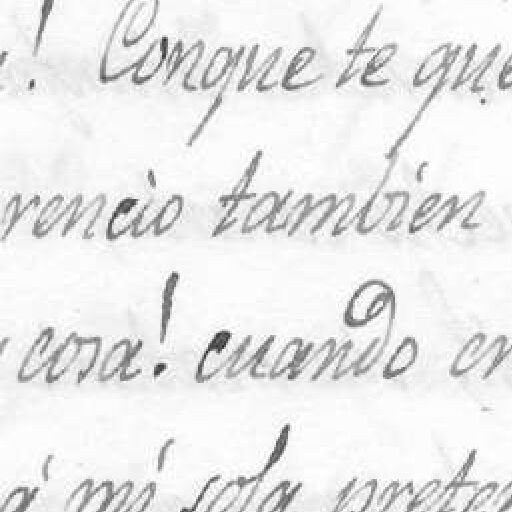 ! Conque te que
rencio tambien
cosa! cuando cr
á mí sola preten